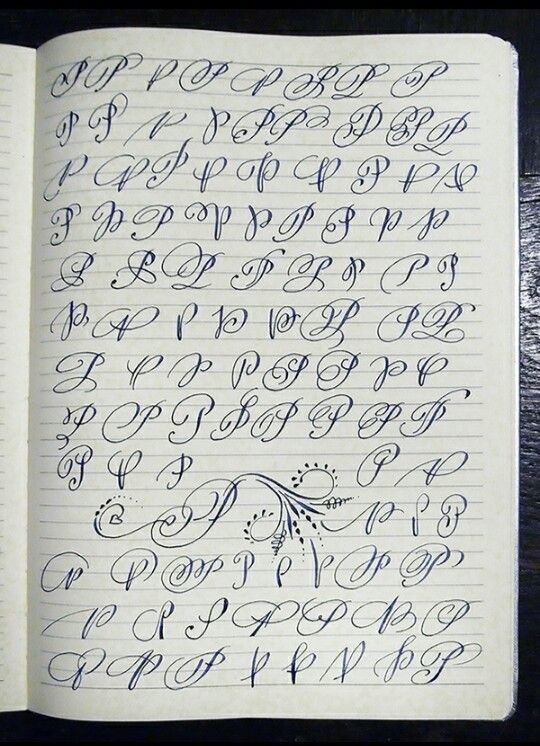 P P P P P P P P
P P P P P P P P P
P P P P P P P P P
P P P P P P P P P
P P P P P P P P
P P P P P P P P
P P P P P P P P
P P P P P P P P
P P P P P
P P P P
P P P P P P P P
P P P P P P P
P P P P P P P P